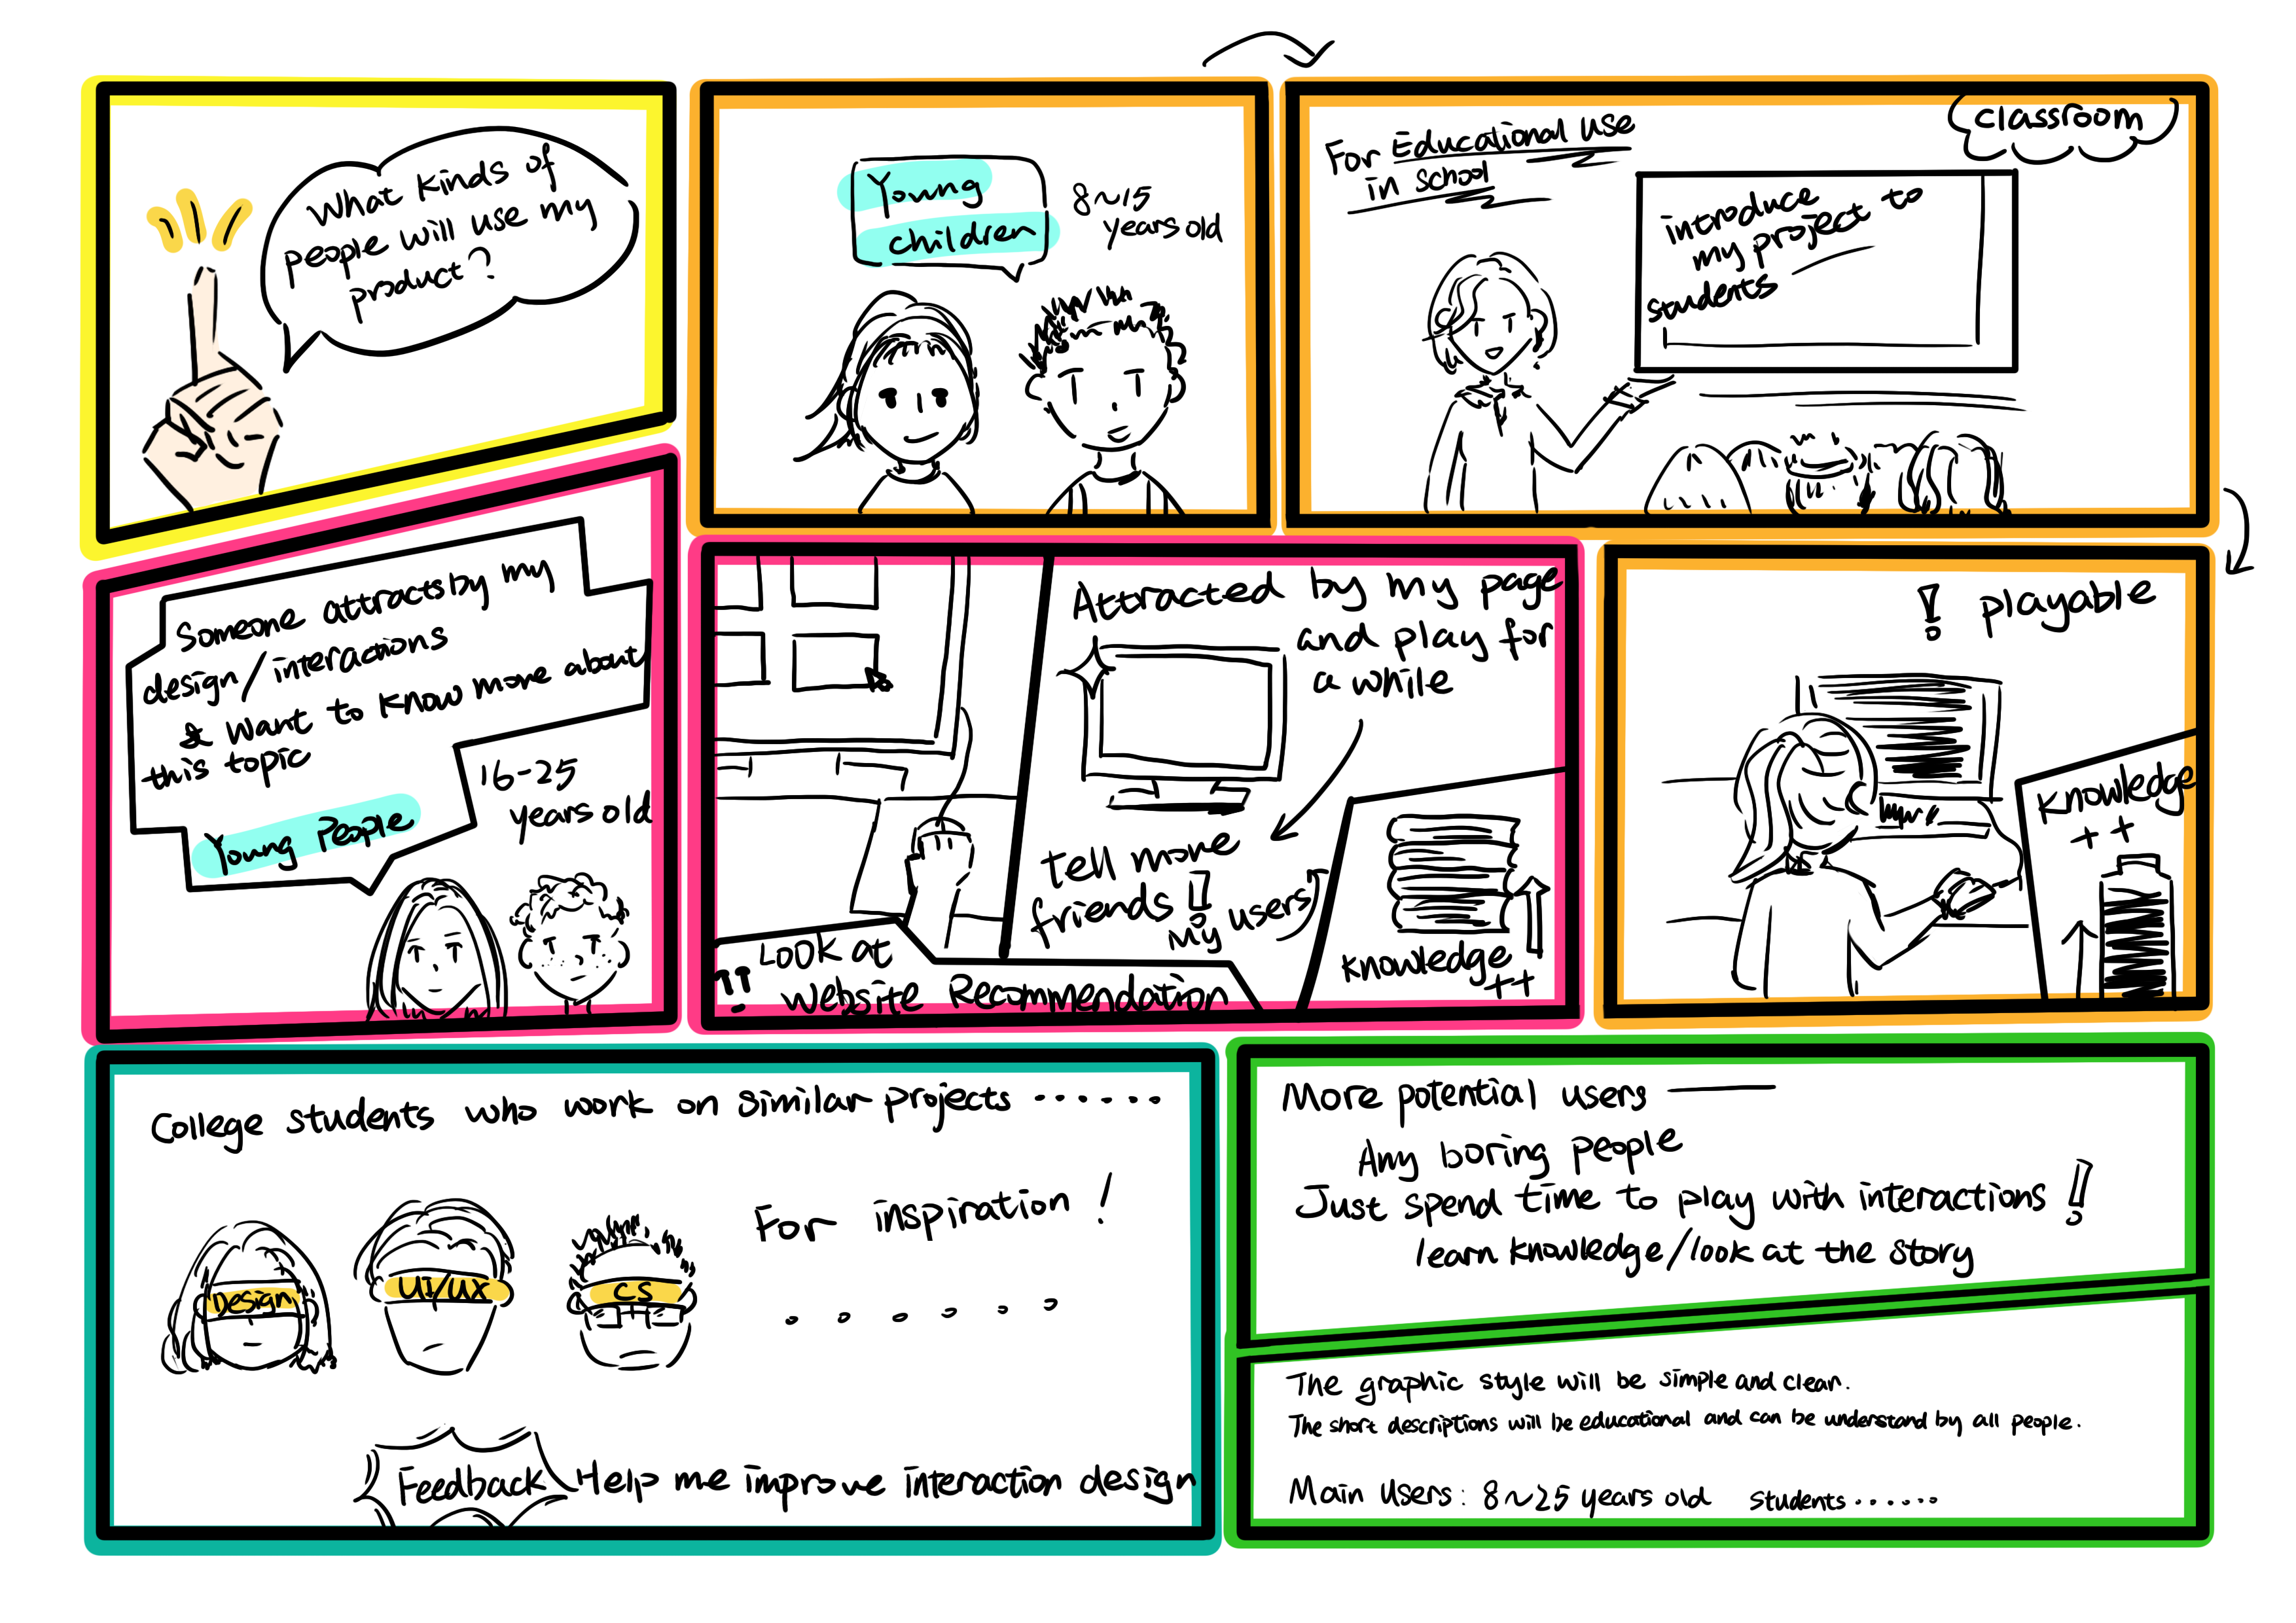 What kinds of
people will use my
product?
Young
children
8~15
years old
For Educational use
in school
classroom
introduce
my project to
students
! playable
knowledge
++
Someone attracts by my
design/interactions
& want to know more about
this topic
Young People
16-25
years old
Attracted by my page
and play for
a while
tell more
friends!
my users
Look at
Website Recommendation
!!
knowledge
++
College students who work on similar projects ······
Design
UI/UX
CS
For inspiration!
······
Feedback
Help me improve interaction design
More potential users ——
Any boring people
Just spend time to play with interactions!
learn knowledge/look at the story
The graphic style will be simple and clear.
The short descriptions will be educational and can be understand by all people.
Main Users: 8~25 years old students······